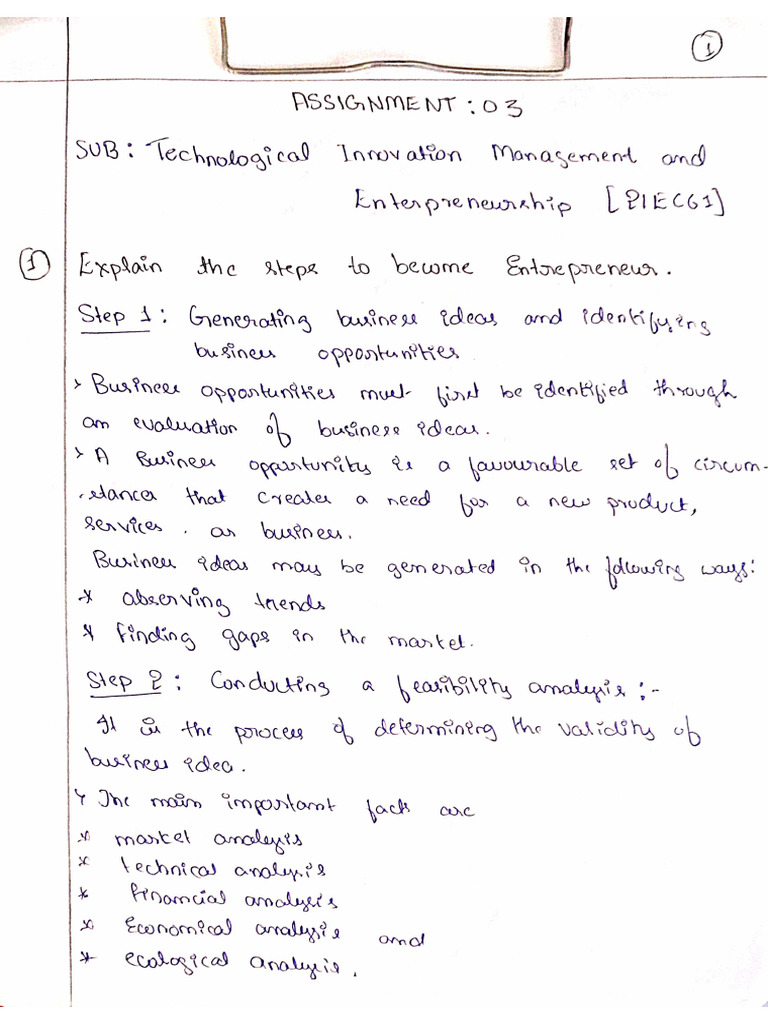 1
ASSIGNMENT : 03
SUB : Technological Innovation Management and
Enterpreneurship [21EC61]
1 Explain the steps to become Entrepreneur.
Step 1 : Generating business ideas and identifying
business opportunities
> Business opportunities must first be identified through
an evaluation of business ideas.
> A Business opportunity is a favourable set of circum-
-stances that creates a need for a new product,
services. or business.
Business ideas may be generated in the following ways:
* observing trends
* finding gaps in the market.
Step 2 : Conducting a feasibility analysis :-
It is the process of determining the validity of
business idea.
> The main important facts are
* market analysis
* technical analysis
* financial analysis
* Economical analysis and
* ecological analysis.